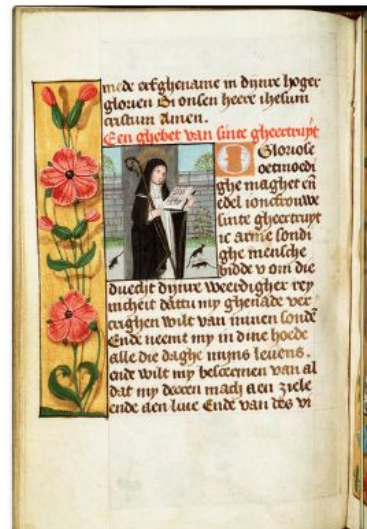 mede erfghename in dijnre hoger
glorien Bi onsen heere ihesum
cristum Amen.
Een ghebet van sinte gheertruyt
O Gloriose
oetmoedi
ghe maghet en̄
edel ionctfrouwe
sinte gheertruyt
ic arme sondi
ghe mensche
bidde v om die
duecht dijnre weerdigher rey
nicheit dattu my ghenade ver
crighen wilt van minen sondē
Ende neemt my in dine hoede
alle die daghe mijns leuens.
ende wilt my bescermen van al
dat my deeren mach aen ziele
ende aen liue Ende van des vi